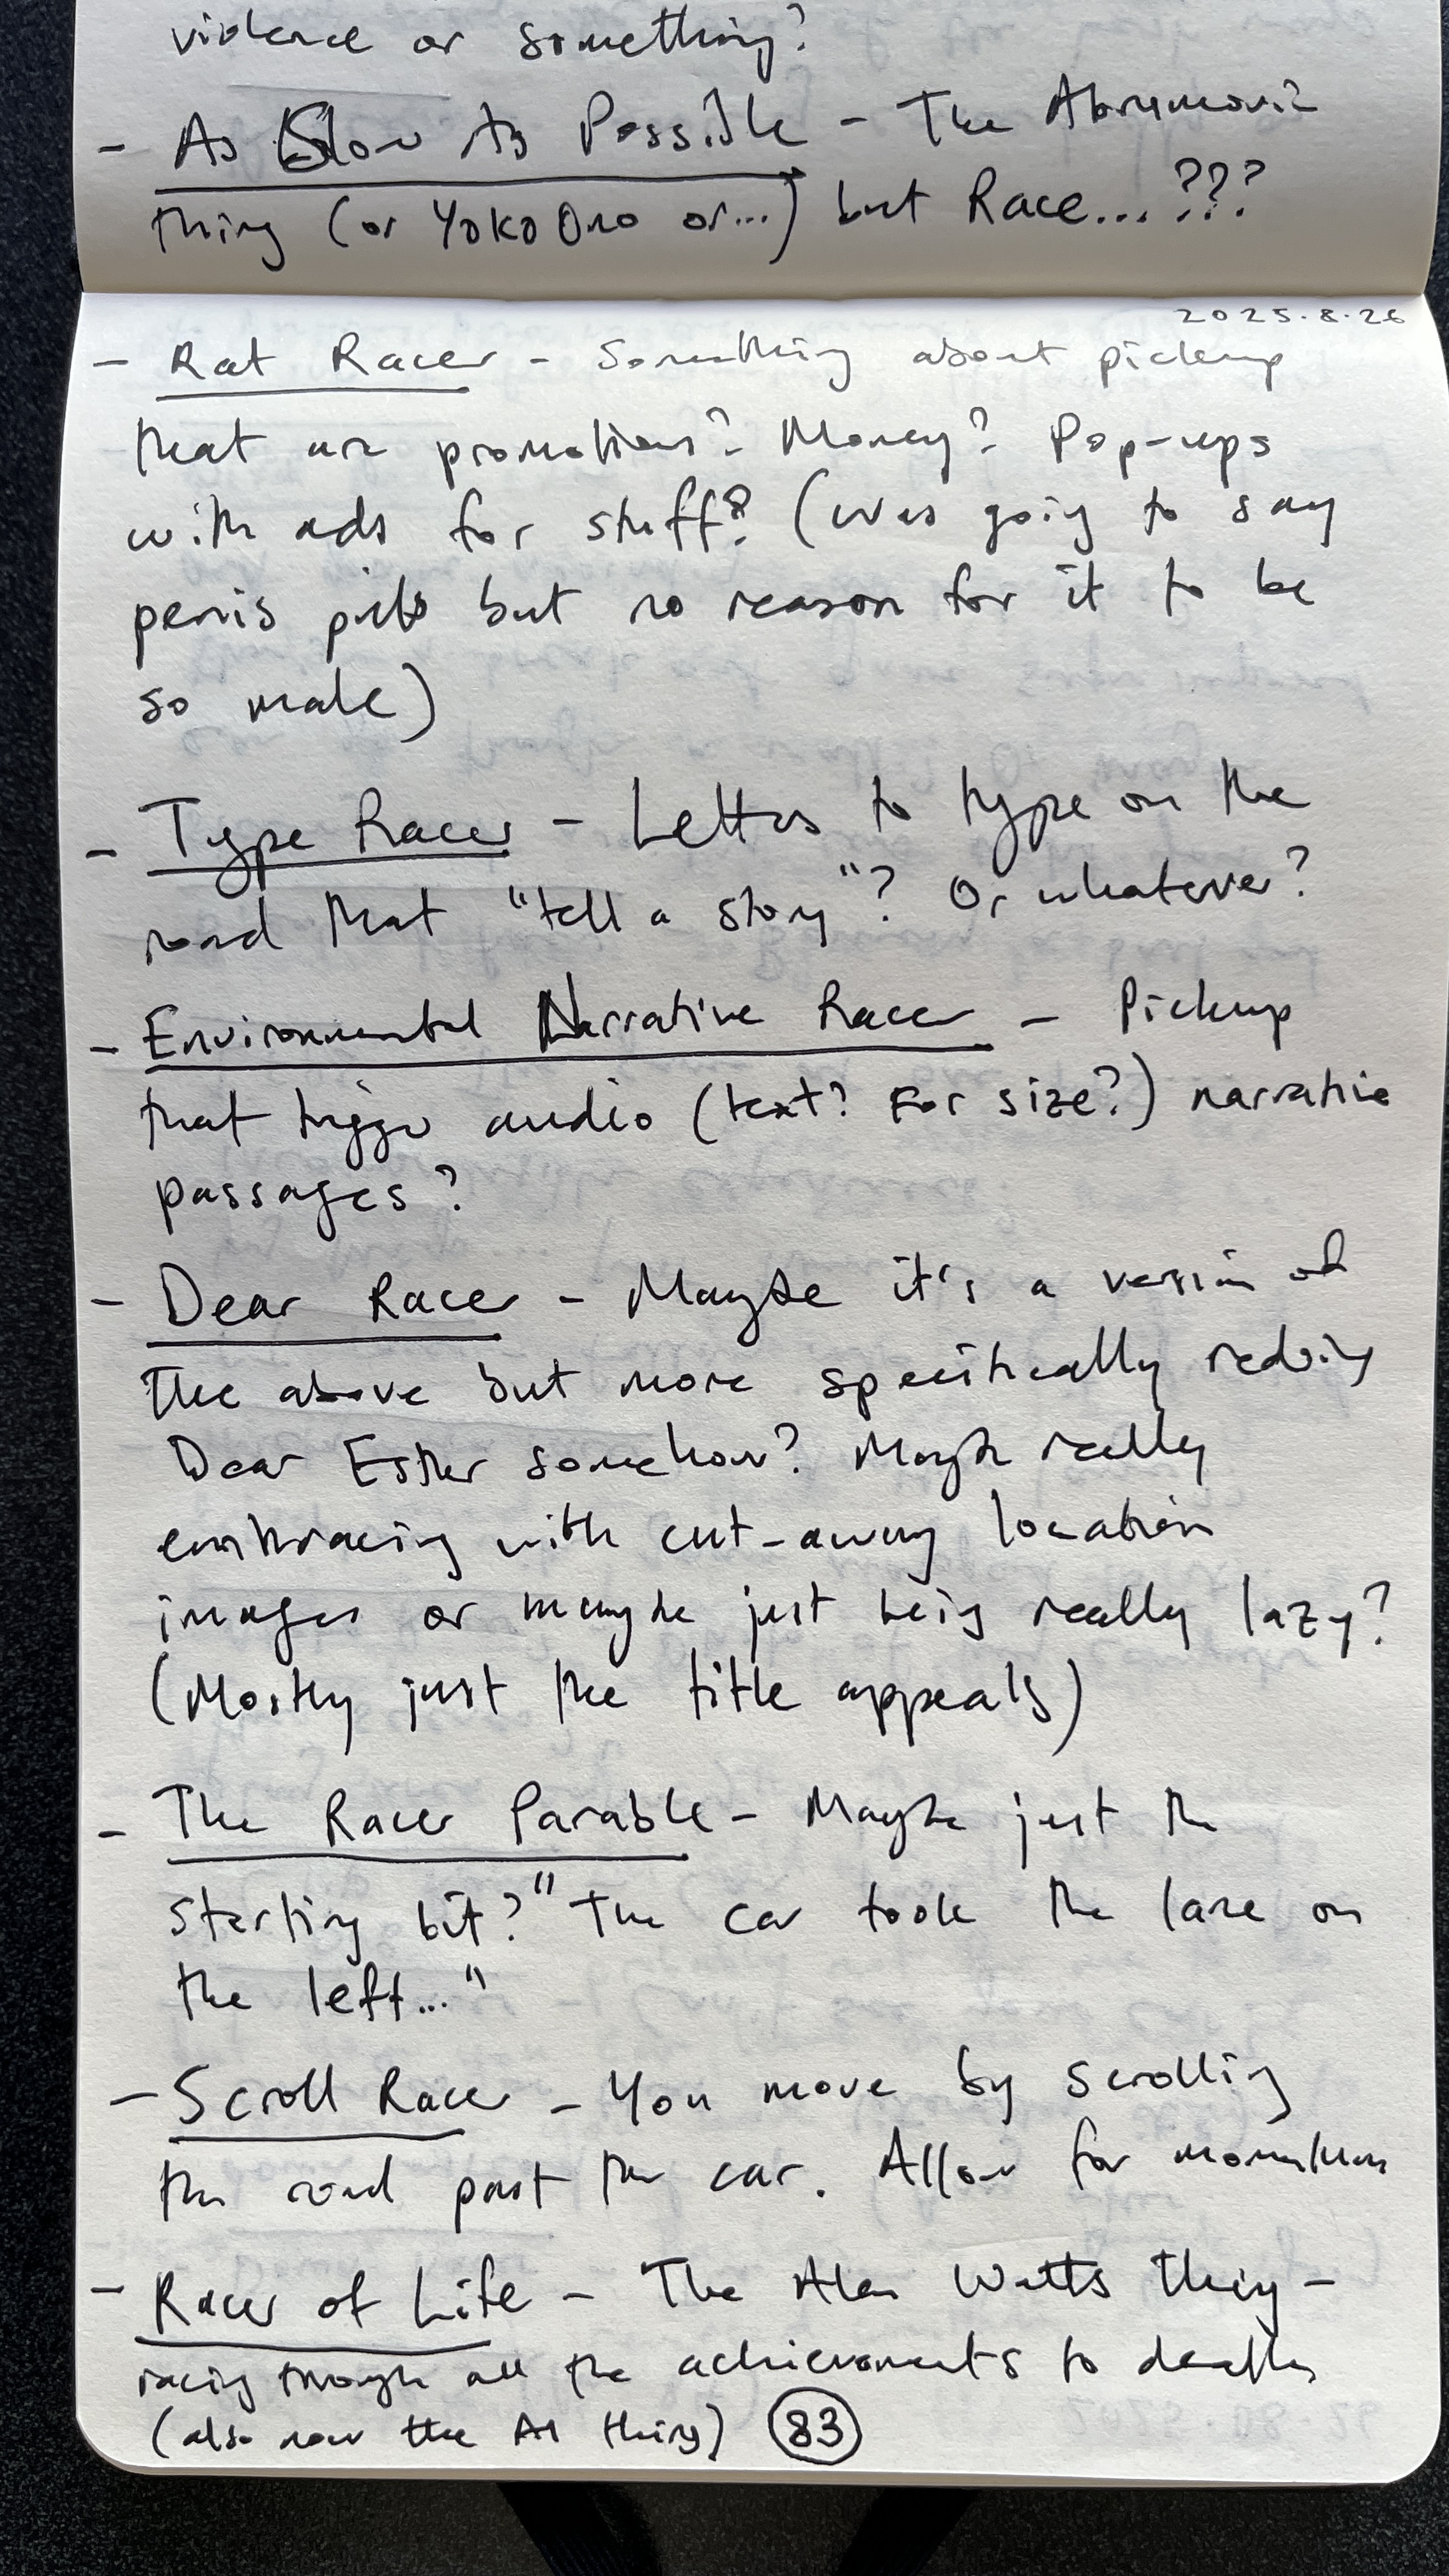 violence or something?
- As Slow As Possible - The Abramovic
thing (or Yoko Ono or...) but Race...???
2025.8.26
- Rat Racer - Something about pickup
that are promotions? Money? Pop-ups
with ads for stuff? (was going to say
penis pills but no reason for it to be
so male)
- Type Racer - Letters to type on the
road that "tell a story"? Or whatever?
- Environmental Narrative Racer - Pickup
that trigger audio (text? For size?) narrative
passages?
- Dear Racer - Maybe it's a version of
the above but more specifically redoing
Dear Esther somehow? Maybe really
embracing with cut-away location
images or maybe just being really lazy?
(Mostly just the title appeals)
- The Racer Parable - Maybe just the
starting bit? "The car took the lane on
the left..."
- Scroll Racer - You move by scrolling
the road past the car. Allow for momentum
- Racer of Life - The Alan Watts thing -
racing through all the achievements to death
(also now the AI thing) 83